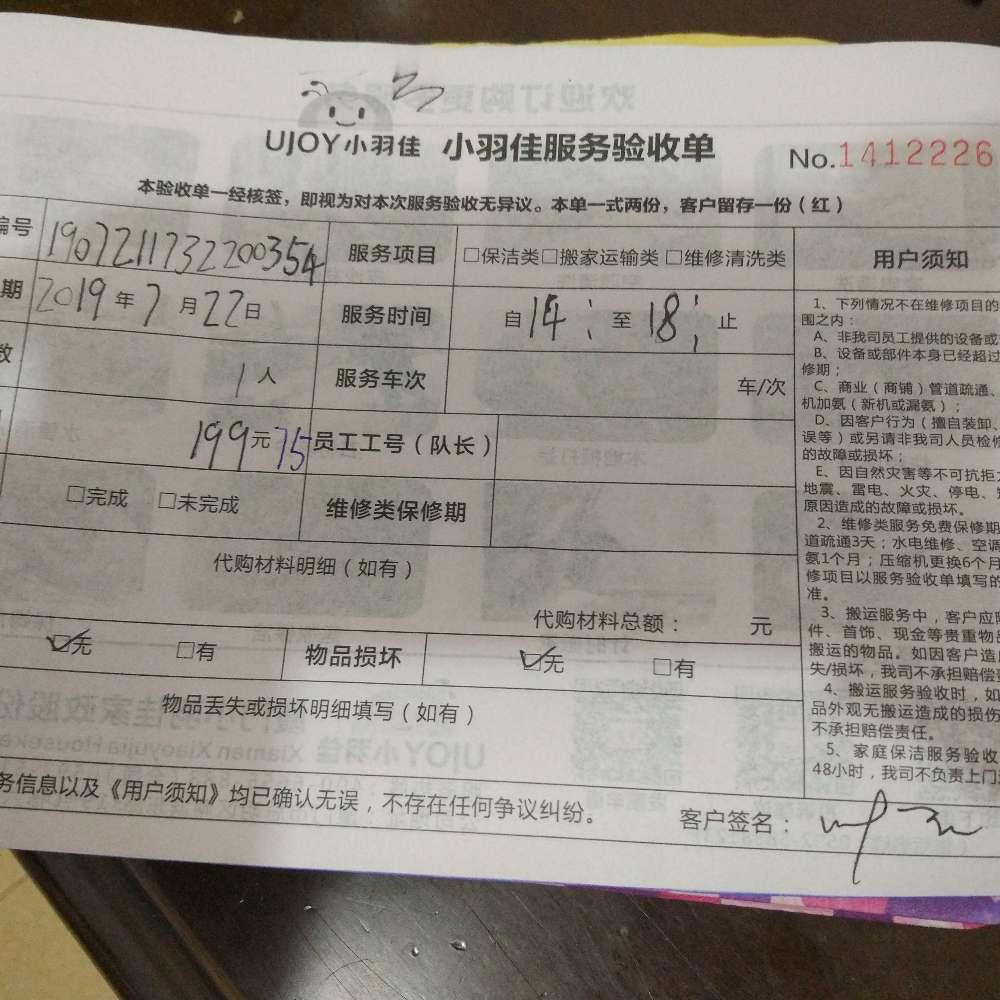 UJOY小羽佳 小羽佳服务验收单 No.1412226
本验收单一经核签，即视为对本次服务验收无异议。本单一式两份，客户留存一份（红）
编号 1907211732200354 服务项目 □保洁类□搬家运输类 □维修清洗类 用户须知
期 2019年7月22日 服务时间 自14: 至18: 止
数 1人 服务车次 车/次
199元 75 员工工号（队长）
□完成 □未完成 维修类保修期
代购材料明细（如有）
代购材料总额： 元
☑无 □有 物品损坏 ☑无 □有
物品丢失或损坏明细填写（如有）
务信息以及《用户须知》均已确认无误，不存在任何争议纠纷。 客户签名：
1、下列情况不在维修项目的
围之内：
A、非我司员工提供的设备或
B、设备或部件本身已经超过
修期；
C、商业（商铺）管道疏通、
机加氨（新机或漏氨）；
D、因客户行为（擅自装卸、
误等）或另请非我司人员检修
的故障或损坏；
E、因自然灾害等不可抗拒
地震、雷电、火灾、停电、
原因造成的故障或损坏。
2、维修类服务免费保修期
道疏通3天；水电维修、空调
氨1个月；压缩机更换6个月
修项目以服务验收单填写的
准。
3、搬运服务中，客户应
件、首饰、现金等贵重物
搬运的物品。如因客户造
失/损坏，我司不承担赔偿
4、搬运服务验收时，如
品外观无搬运造成的损伤
不承担赔偿责任。
5、家庭保洁服务验收
48小时，我司不负责上门